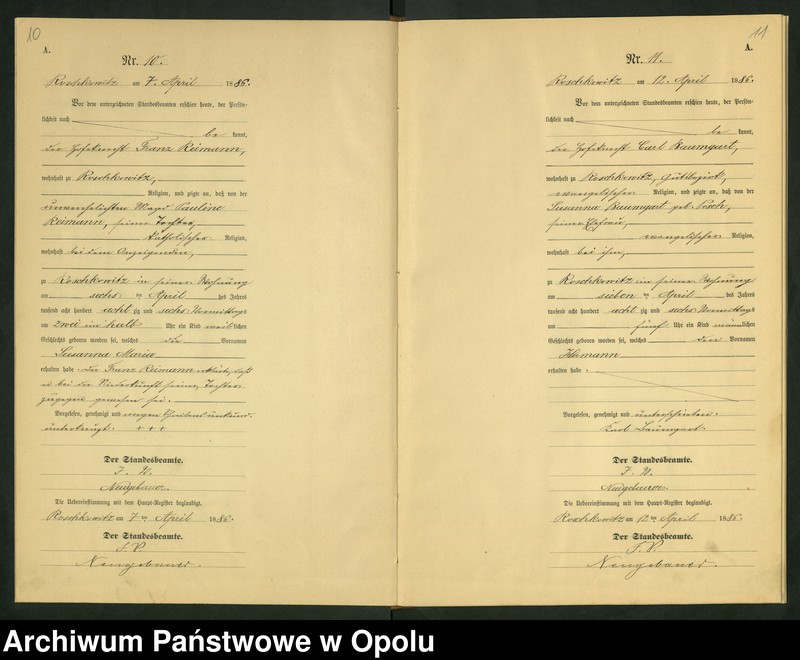 10
A.
Nr. 10.
Roschkowitz am 7. April 1886.
Vor dem unterzeichneten Standesbeamten erschien heute, der Persön-
lichkeit nach
be kannt,
der Hofeknecht Franz Reimann,
wohnhaft zu Roschkowitz,
Religion, und zeigte an, daß von der
unverehelichten Magd Pauline
Reimann, seiner Tochter,
katholischer Religion,
wohnhaft bei dem Anzeigenden,
zu Roschkowitz in seiner Wohnung
am sechs ten April des Jahres
tausend acht hundert acht zig und sechs Vormittags
um zwei ein halb Uhr ein Kind weiblichen
Geschlechts geboren worden sei, welches die Vornamen
Susanna Maria
erhalten habe. Der Franz Reimann erklärt, daß
er bei der Niederkunft seiner Tochter
zugegen gewesen sei.
Vorgelesen, genehmigt und wegen Schreibensunkunde
unterkreuzt. + + +
Der Standesbeamte.
J. V.
Neugebauer
Die Uebereinstimmung mit dem Haupt-Register beglaubigt.
Roschkowitz am 7 ten April 1886.
Der Standesbeamte.
J. V.
Neugebauer.
11
A.
Nr. 11.
Roschkowitz am 12. April 1886.
Vor dem unterzeichneten Standesbeamten erschien heute, der Persön-
lichkeit nach
be kannt,
der Hofeknecht Carl Baumgart,
wohnhaft zu Roschkowitz, Gutsbezirk,
evangelischer Religion, und zeigte an, daß von der
Susanna Baumgart geb.
seiner Ehefrau,
evangelischer Religion,
wohnhaft bei ihm,
zu Roschkowitz in seiner Wohnung
am sieben ten April des Jahres
tausend acht hundert acht zig und sechs Vormittags
um fünf Uhr ein Kind männlichen
Geschlechts geboren worden sei, welches den Vornamen
Hermann
erhalten habe.
Vorgelesen, genehmigt und unterschrieben.
Karl Baumgart.
Der Standesbeamte.
J. V.
Neugebauer.
Die Uebereinstimmung mit dem Haupt-Register beglaubigt.
Roschkowitz am 12 ten April 1886.
Der Standesbeamte.
J. V.
Neugebauer.
Archiwum Państwowe w Opolu